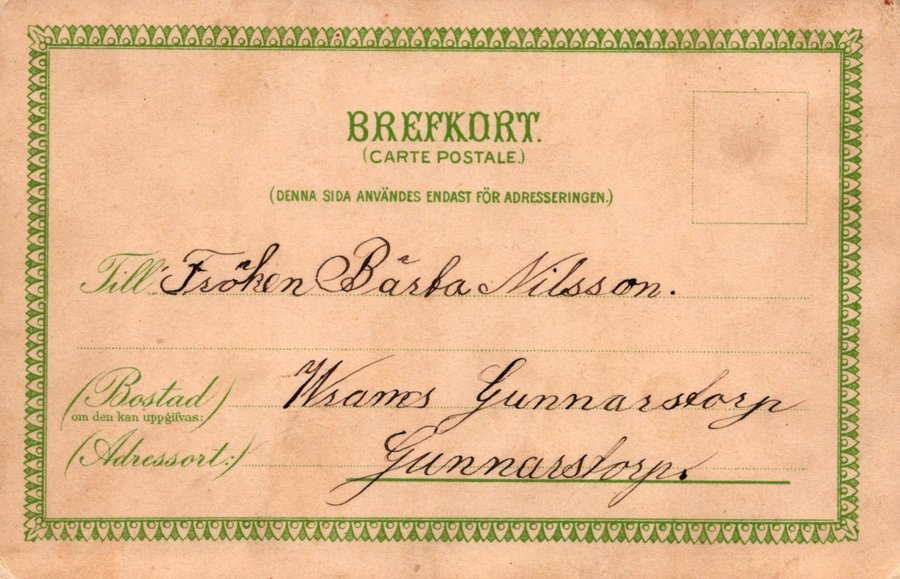 BREFKORT.
(CARTE POSTALE.)
(DENNA SIDA ANVÄNDES ENDAST FÖR ADRESSERINGEN.)
Till: Fröken Bärta Nilsson.
(Bostad)
om den kan uppgifvas:
Wrams Gunnarstorp
(Adressort:) Gunnarstorp.